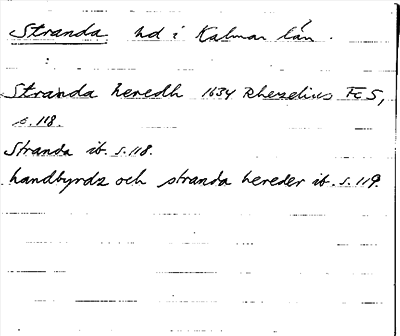 Stranda hd i Kalmar län.
Stranda heredh 1634 Rhezelius FcS,
s.118.
Stranda ib. s.118.
handbyrdz och stranda hereder ib. s.119.